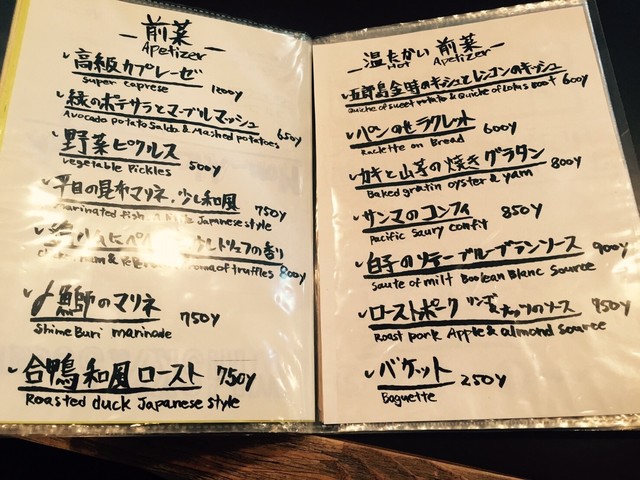 前菜
Apetizer
高級カプレーゼ
super caprese 1200y
緑のポテサラとマーブルマッシュ
Avocado potato Salda & Mashed potatoes 650y
野菜ピクルス
vegetable Pickles 500y
平目の昆布マリネ、少し和風 750y
marinated fish Japanese style
トリュフの香り
aroma of truffles 800y
〆鰤のマリネ
Shime Buri marinade 750y
合鴨和風ロースト 750y
Roasted duck Japanese style
温たかい前菜
Hot Apetizer
五郎島金時のキッシュとレンコンのキッシュ
Quiche of sweet potato & Quiche of Lotus Root 600y
パンのせラクレット
Raclette on Bread 600y
カキと山芋の焼きグラタン
Baked gratin oyster & yam 800y
サンマのコンフィ
Pacific Saury confit 850y
白子のソテーブルーブランソース 900y
Saute of milt Boolean Blanc Source
ローストポーク リンゴ&ナッツのソース 950y
Roast pork Apple & almond Source
バケット
Baguette 250y